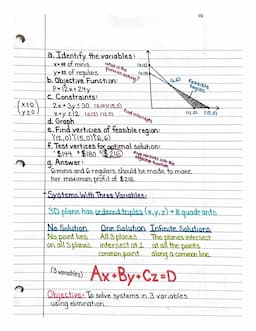 a. Identify the variables:
x=# of minis
y=# of regulars
b. Objective Function:
P=12x+24y
c. Constraints:
2x+3y≤30 (0,10)(15,0)
x+y≥12 (0,12) (12,0)
Find intercepts
(x≥0
y≥0)
d. Graph
(0,12)
(0,10)
(6,6)
feasible
region
(12,0) (15,0)
e. Find verticies of feasible region:
(12,0)(15,0)(6,6)
f. Test vertices for optimal solution:
$144 $180 $216
g. Answer:
6 minis and 6 regulars should be made to make
her maximum profit of $216.
Systems With Three Variables:
3D plane has ordered triples (x,y,z) → 8 quadrants
No Solution One Solution Infinite Solutions
No point lies All 3 planes The planes intersect
on all 3 planes intersect at 1 at all the points
common point. along a common line.
(3 variables) Ax+By+Cz=D
Objective: To solve systems in 3 variables
using elimination.